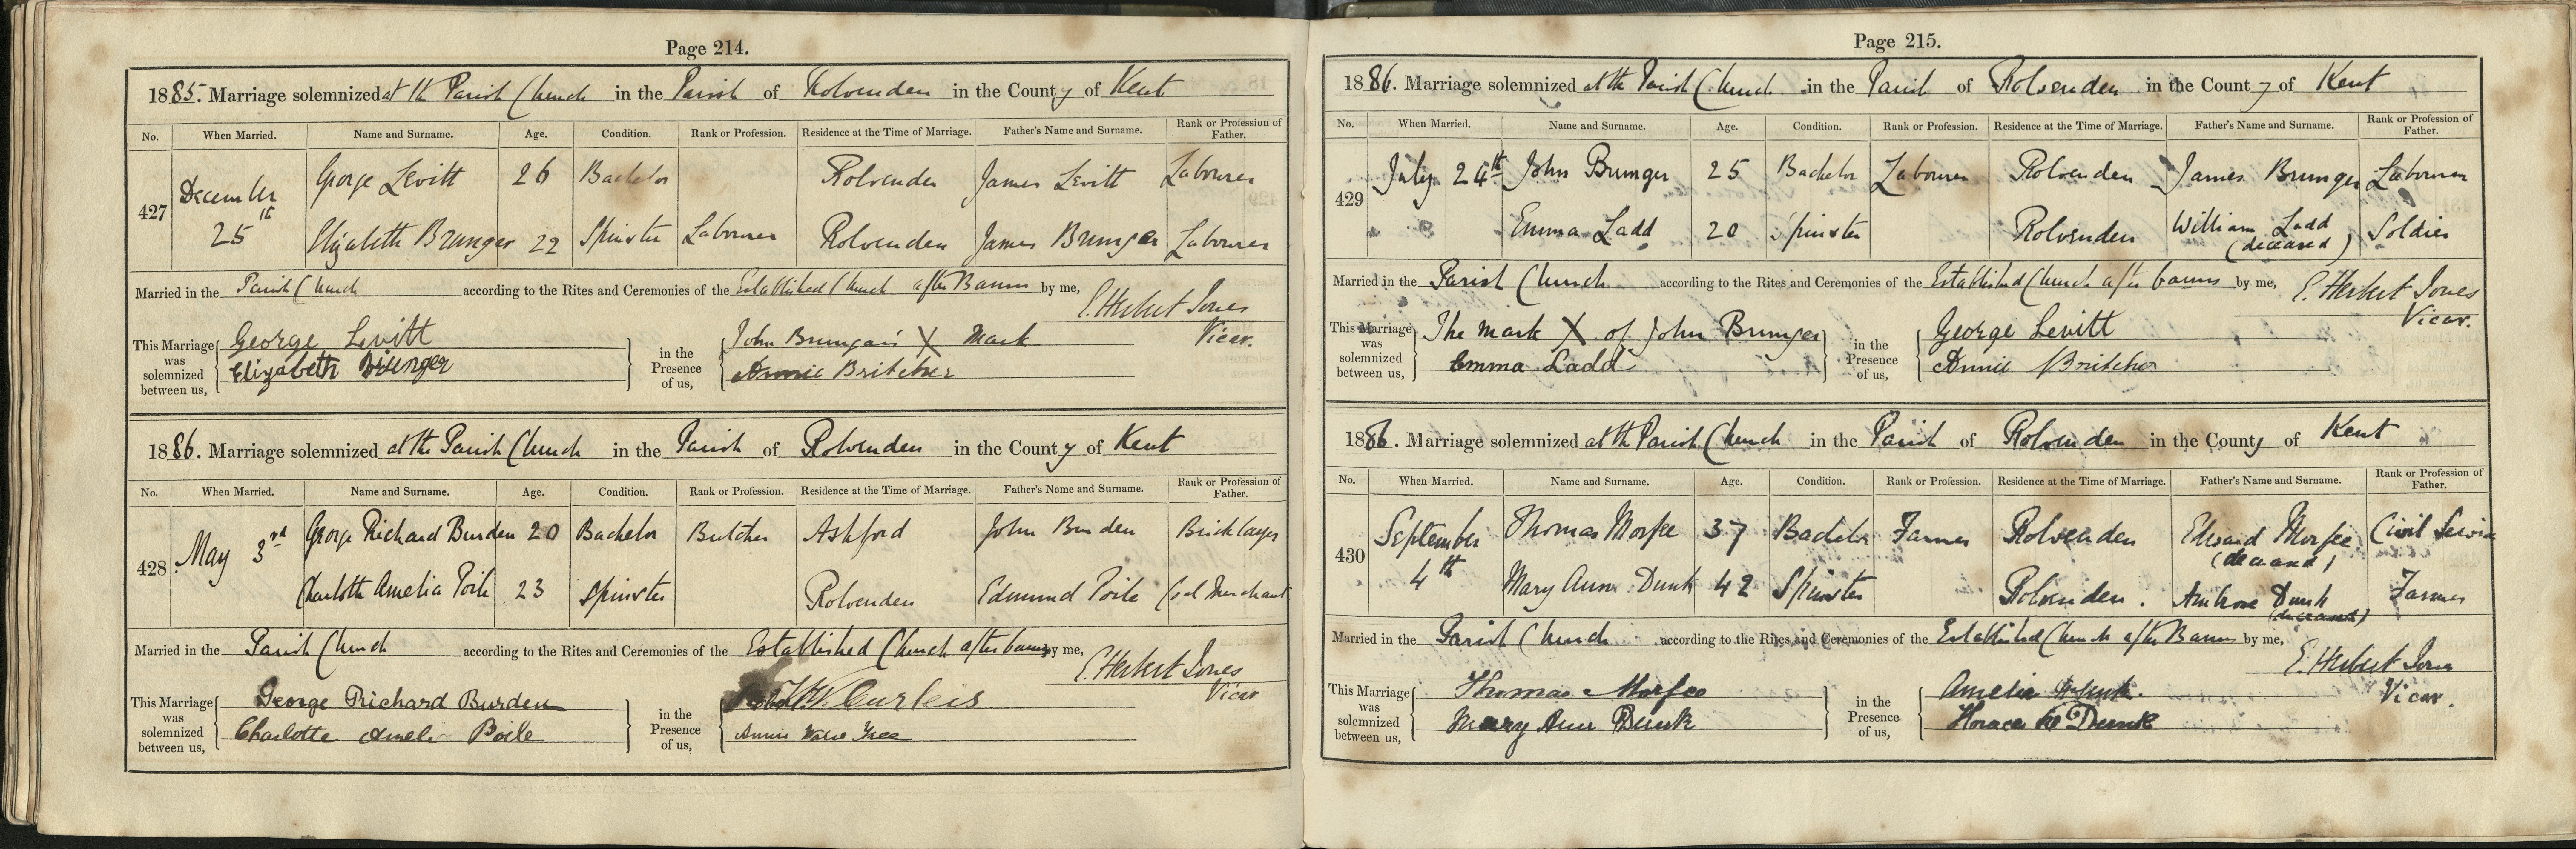 Page 214.
1885. Marriage solemnized at the Parish Church in the Parish of Rolvenden in the County of Kent
No. When Married. Name and Surname. Age. Condition. Rank or Profession. Residence at the Time of Marriage. Father's Name and Surname. Rank or Profession of Father.
427 December 25th George Levitt 26 Bachelor Rolvenden James Levitt Labourer
Elizabeth Brunger 22 Spinster Labourer Rolvenden James Brunger Labourer
Married in the Parish Church according to the Rites and Ceremonies of the Established Church after Banns by me,
E. Herbert Jones
Vicar.
This Marriage was solemnized between us, George Levitt
Elizabeth Brunger
in the Presence of us, John Brunger's X Mark
Annie Britcher
1886. Marriage solemnized at the Parish Church in the Parish of Rolvenden in the County of Kent
No. When Married. Name and Surname. Age. Condition. Rank or Profession. Residence at the Time of Marriage. Father's Name and Surname. Rank or Profession of Father.
428 May 3rd George Richard Burden 20 Bachelor Butcher Ashford John Burden Bricklayer
Charlotte Amelia Poile 23 Spinster Rolvenden Edmund Poile Coal Merchant
Married in the Parish Church according to the Rites and Ceremonies of the Established Church after banns by me,
E. Herbert Jones
Vicar
This Marriage was solemnized between us, George Richard Burden
Charlotte Amelia Poile
in the Presence of us, Curteis
Annie
Page 215.
1886. Marriage solemnized at the Parish Church in the Parish of Rolvenden in the County of Kent
No. When Married. Name and Surname. Age. Condition. Rank or Profession. Residence at the Time of Marriage. Father's Name and Surname. Rank or Profession of Father.
429 July 24th John Brunger 25 Bachelor Labourer Rolvenden James Brunger Labourer
Emma Ladd 20 Spinster Rolvenden William Ladd (deceased) Soldier
Married in the Parish Church according to the Rites and Ceremonies of the Established Church after banns by me,
E. Herbert Jones
Vicar.
This Marriage was solemnized between us, The mark X of John Brunger
Emma Ladd
in the Presence of us, George Levitt
Annie Britcher
1886. Marriage solemnized at the Parish Church in the Parish of Rolvenden in the County of Kent
No. When Married. Name and Surname. Age. Condition. Rank or Profession. Residence at the Time of Marriage. Father's Name and Surname. Rank or Profession of Father.
430 September 4th Thomas Morfee 37 Bachelor Farmer Rolvenden Edward Morfee (deceased) Civil Service
Mary Ann Dunk 42 Spinster Rolvenden. Ambrose Dunk (deceased) Farmer
Married in the Parish Church according to the Rites and Ceremonies of the Established Church after Banns by me,
E. Herbert Jones
Vicar.
This Marriage was solemnized between us, Thomas Morfee
Mary Ann Dunk
in the Presence of us, Amelia Dunk.
Horace Dunk